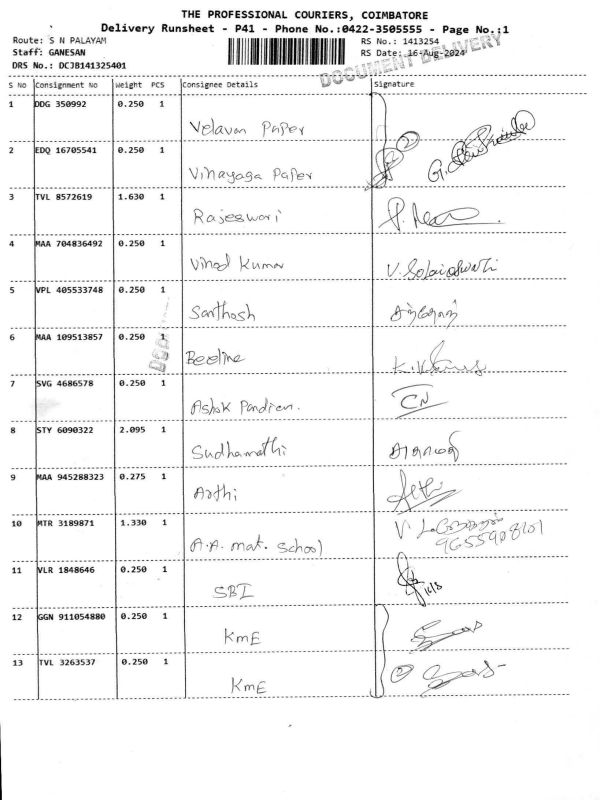 THE PROFESSIONAL COURIERS, COIMBATORE
Delivery Runsheet - P41 - Phone No.:0422-3505555 - Page No.:1
Route: S N PALAYAM
RS No.: 1413254
Staff: GANESAN
RS Date: 16-Aug-2024
DRS No.: DCJB141325401
DOCUMENT DELIVERY
S No Consignment No Weight PCS Consignee Details Signature
1 DDG 350992 0.250 1
Velavan Paper
2 EDQ 16705541 0.250 1
Vinayaga Paper
2
3 TVL 8572619 1.630 1
Rajeswari
4 MAA 704836492 0.250 1
Vinod Kumar
5 VPL 405533748 0.250 1
Santhosh
6 MAA 109513857 0.250 1
Beeline
7 SVG 4686578 0.250 1
Ashok Pandian.
CN
8 STY 6090322 2.095 1
Sudhamathi சுதாமதி
9 MAA 945288323 0.275 1
Arthi
10 MTR 3189871 1.330 1
A.A. mat. School
11 VLR 1848646 0.250 1
SBI
16/8
12 GGN 911054880 0.250 1
KmE
13 TVL 3263537 0.250 1
KmE
2